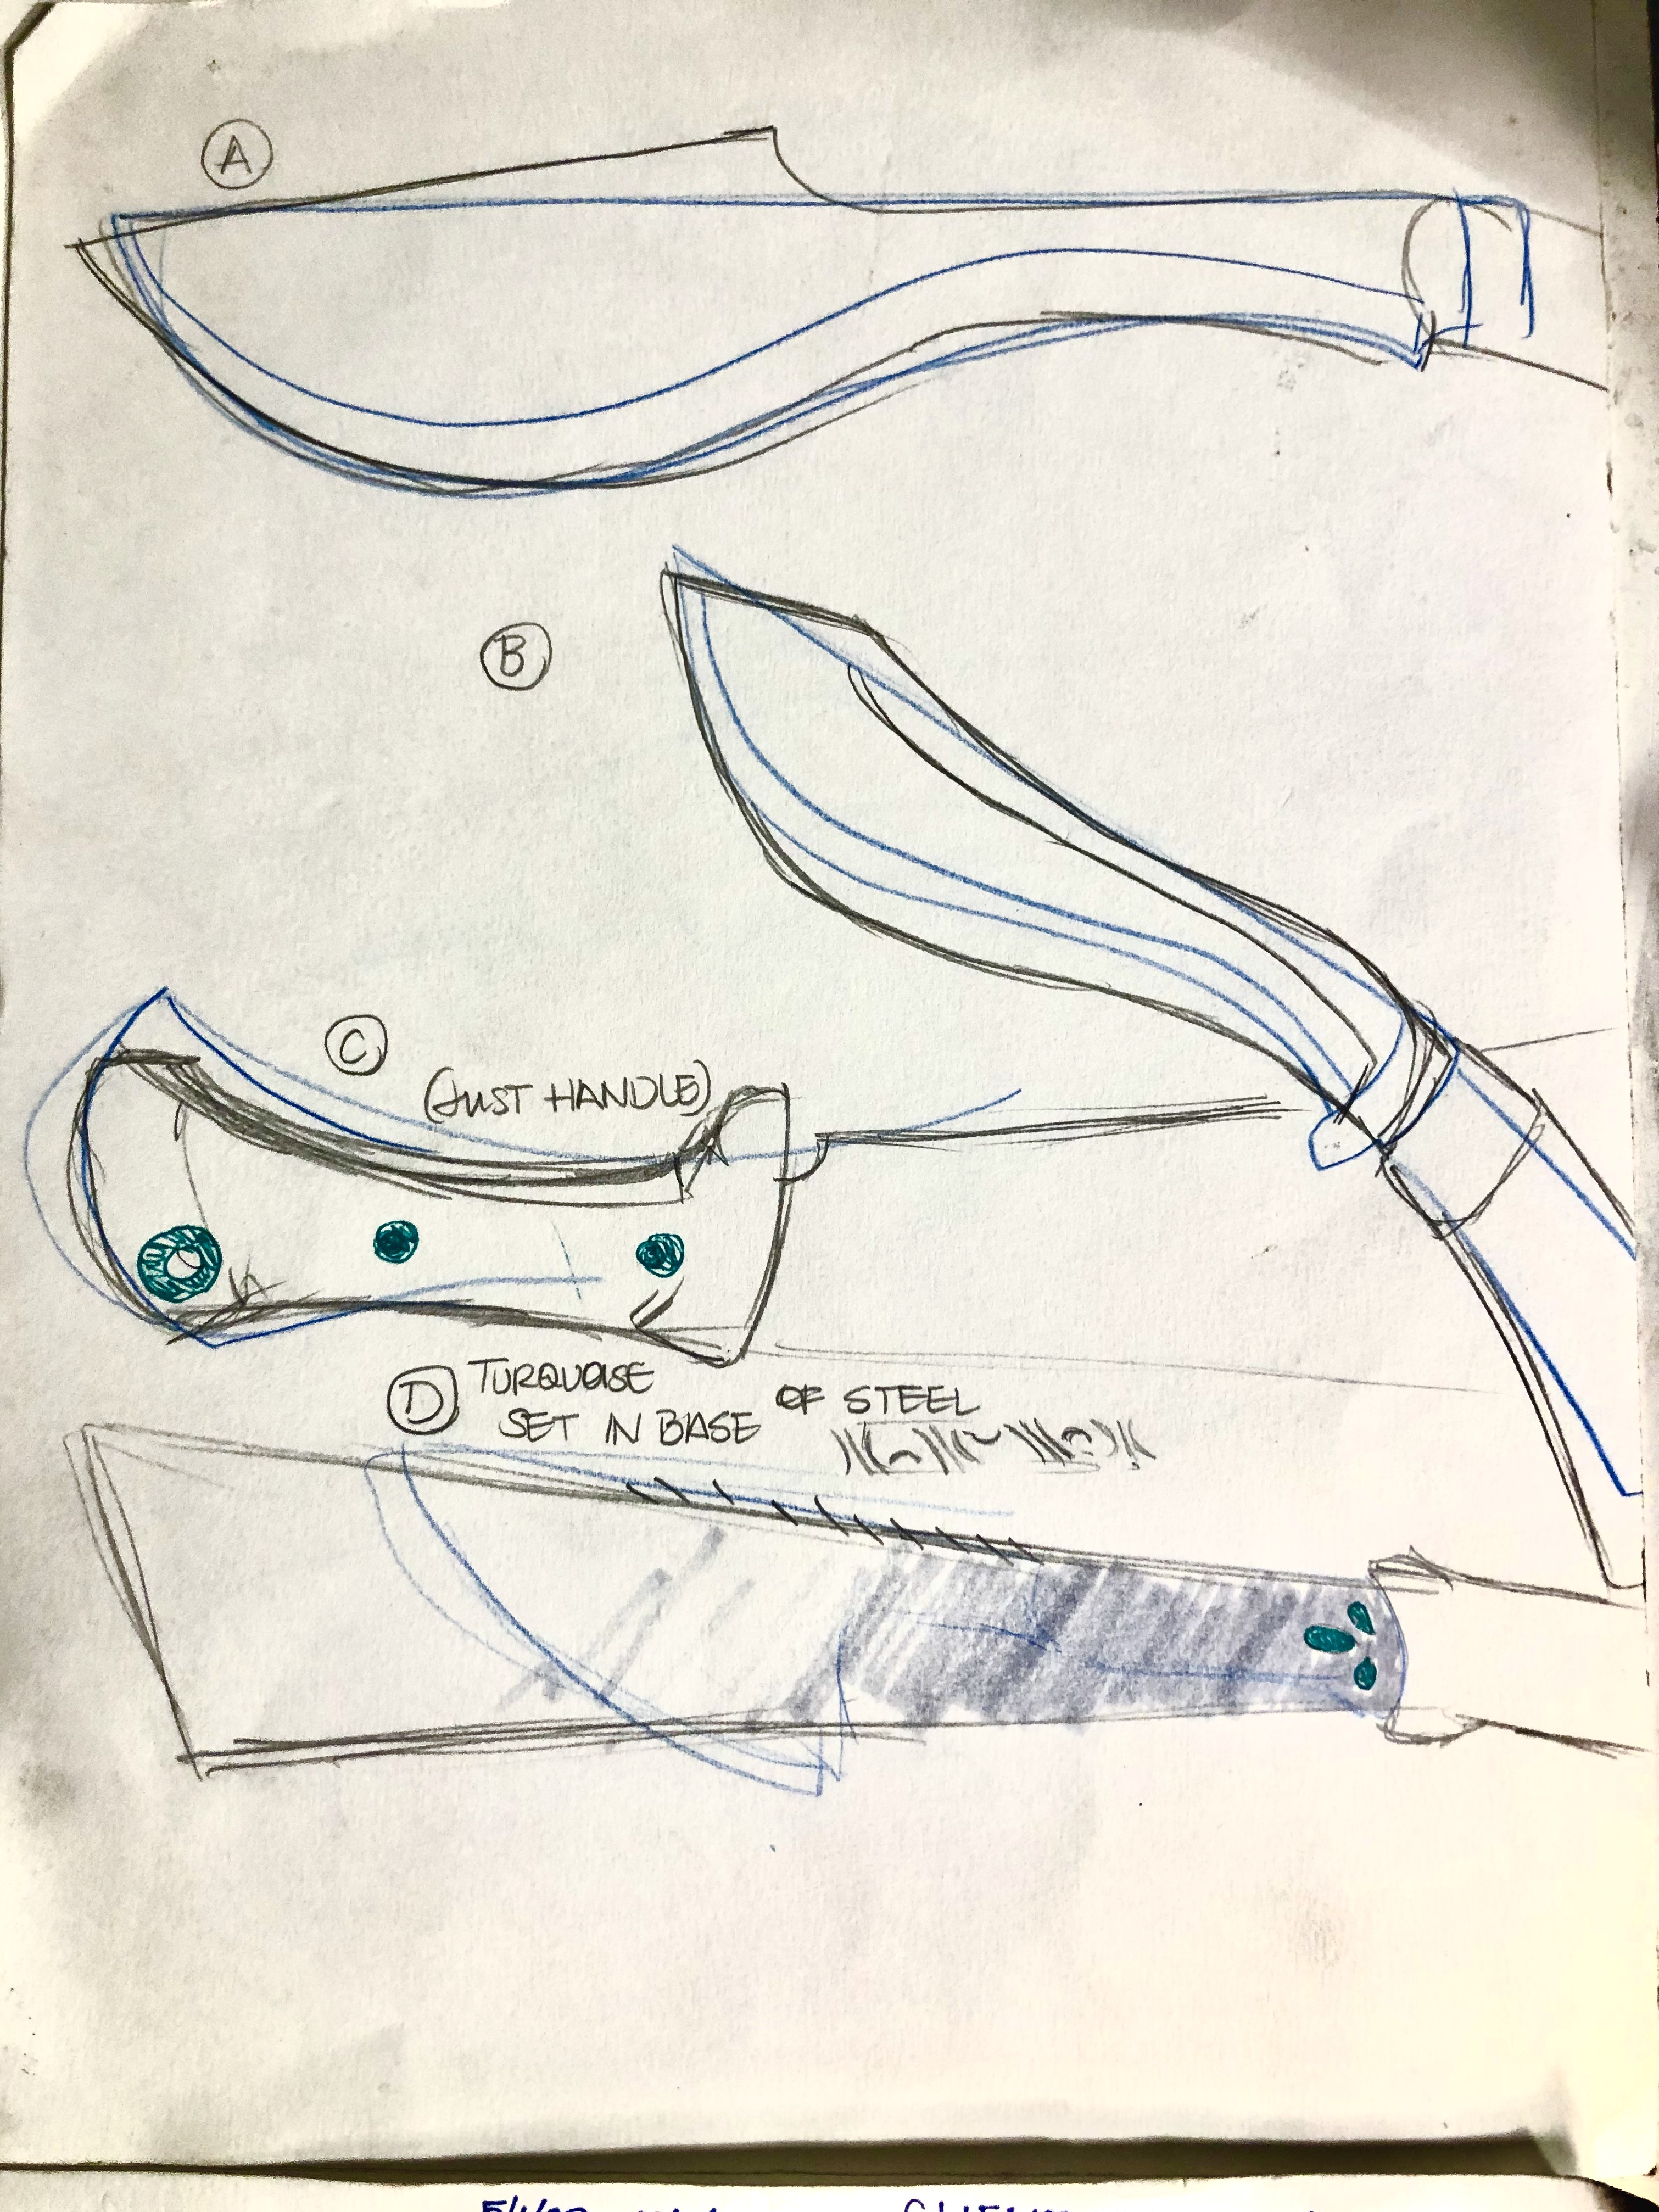 A
B
C
(JUST HANDLE)
D
TURQUOISE
SET IN BASE OF STEEL